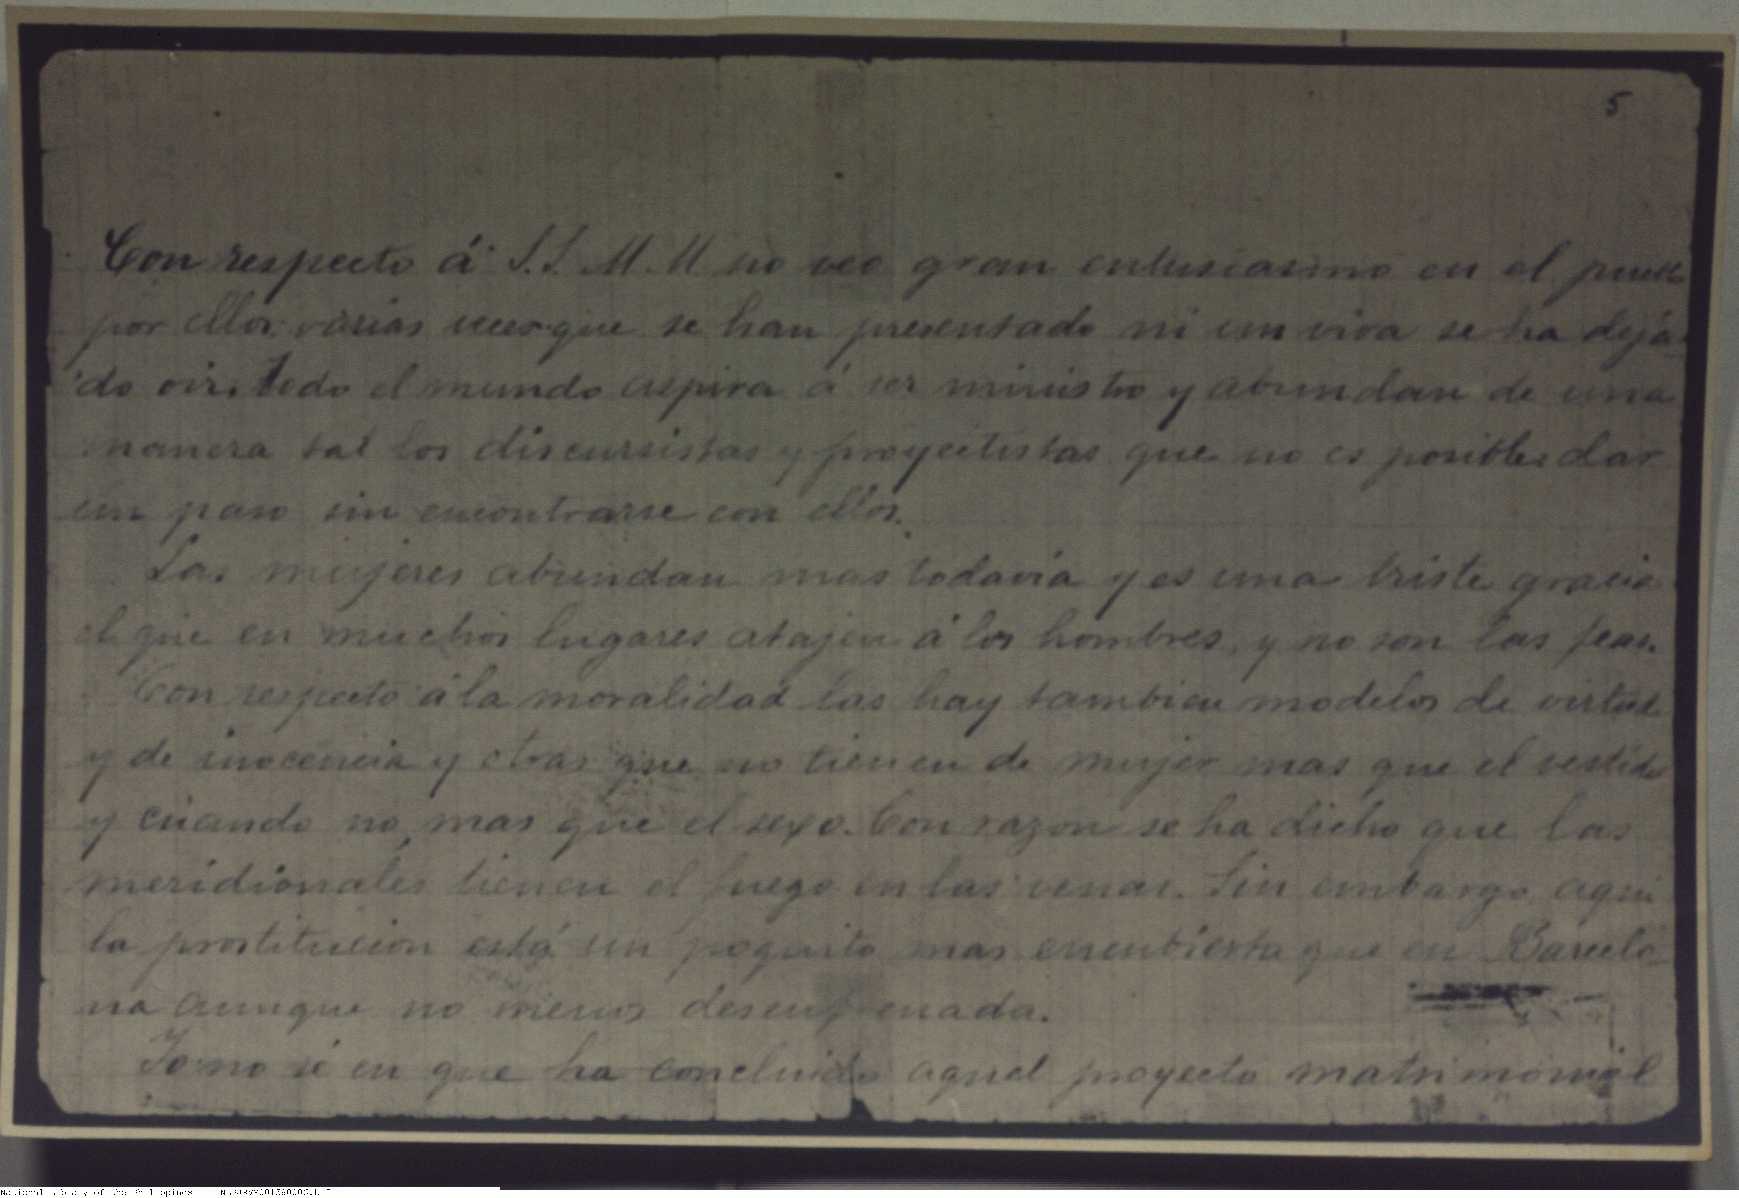 5
Con respecto á S.S. M.M. no veo gran entusiasmo en el pueblo
por ellos: varias veces que se han presentado ni un viva se ha deja-
do oir. todo el mundo aspira á ser ministro y abundan de una
manera tal los discursistas y proyectistas que no es posible dar
un paso sin encontrarse con ellos.
Las mujeres abundan mas todavía y es una triste gracia
el que en muchos lugares atajen á los hombres, y no son las feas.
Con respecto á la moralidad las hay tambien modelos de virtud
y de inocencia y otras que no tienen de mujer mas que el vestido
y cuando no, mas que el sexo. Con razon se ha dicho que las
meridionales tienen el fuego en las venas. Sin embargo, aqui
la prostitucion está un poquito mas encubierta que en Barcelo-
na aunque no menos desenfrenada.
Yo no sé en que ha concluido aquel proyecto matrimonial
National Library of the Philippines